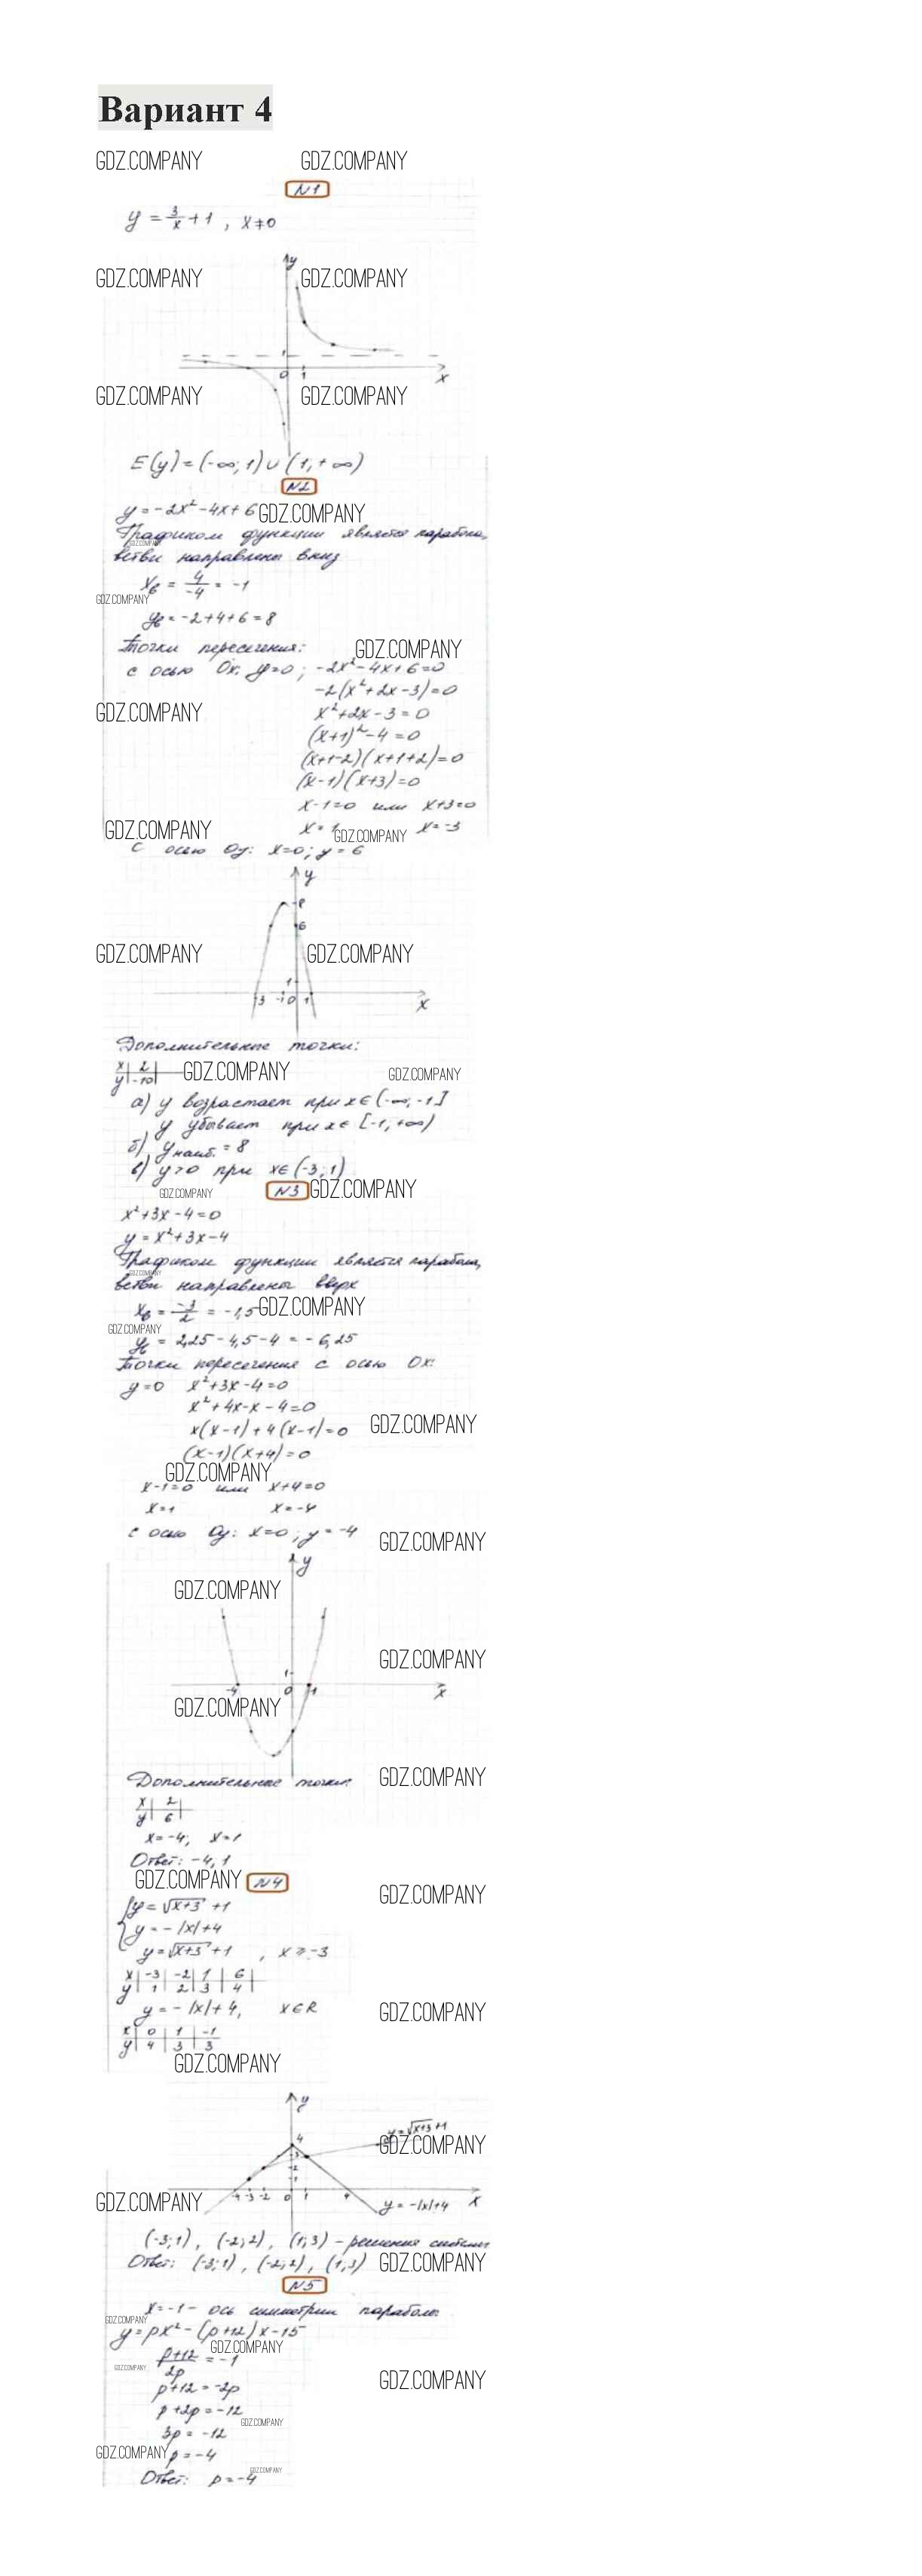 Вариант 4
GDZ.COMPANY GDZ.COMPANY
N1
y = 3/x + 1 , x ≠ 0
y
GDZ.COMPANY GDZ.COMPANY
1
0 1 x
GDZ.COMPANY GDZ.COMPANY
E(y) = (-∞; 1) ∪ (1; +∞)
N2
y = -2x² - 4x + 6 GDZ.COMPANY
Графиком функции является парабола,
GDZ.COMPANY
ветви направлены вниз
xв = 4/-4 = -1
GDZ.COMPANY
yв = -2+4+6 = 8
Точки пересечения: GDZ.COMPANY
с осью Ox: y=0 ; -2x² - 4x + 6 = 0
-2(x² + 2x - 3) = 0
GDZ.COMPANY x² + 2x - 3 = 0
(x+1)² - 4 = 0
(x+1-2)(x+1+2) = 0
(x-1)(x+3) = 0
x-1=0 или x+3=0
GDZ.COMPANY x = 1 GDZ.COMPANY x = -3
с осью Oy: x=0; y = 6
y
8
6
GDZ.COMPANY GDZ.COMPANY
1
-3 -1 0 1 x
Дополнительные точки:
x | 2 |
y | -10 |
GDZ.COMPANY GDZ.COMPANY
а) y возрастает при x ∈ (-∞; -1]
y убывает при x ∈ [-1; +∞)
б) yнаиб. = 8
в) y>0 при x ∈ (-3; 1)
GDZ.COMPANY N3 GDZ.COMPANY
x² + 3x - 4 = 0
y = x² + 3x - 4
Графиком функции является парабола,
GDZ.COMPANY
ветви направлены вверх
xв = -3/2 = -1,5 GDZ.COMPANY
GDZ.COMPANY
yв = 2,25 - 4,5 - 4 = -6,25
Точки пересечения с осью Ox:
y=0 x² + 3x - 4 = 0
x² + 4x - x - 4 = 0
x(x-1) + 4(x-1) = 0 GDZ.COMPANY
(x-1)(x+4) = 0
GDZ.COMPANY
x-1=0 или x+4=0
x=1 x=-4
с осью Oy: x=0; y = -4 GDZ.COMPANY
y
GDZ.COMPANY
GDZ.COMPANY
1
-4 0 1 x
GDZ.COMPANY
Дополнительные точки: GDZ.COMPANY
x | 2 |
y | 6 |
x = -4; x = 1
Ответ: -4, 1
GDZ.COMPANY N4 GDZ.COMPANY
{ y = √(x+3) + 1
{ y = -|x| + 4
y = √(x+3) + 1 , x ≥ -3
x | -3 | -2 | 1 | 6 |
y | 1 | 2 | 3 | 4 |
y = -|x| + 4, x ∈ R GDZ.COMPANY
x | 0 | 1 | -1
y | 4 | 3 | 3
GDZ.COMPANY
y
y = √(x+3) + 1
4
GDZ.COMPANY
3
2
1
GDZ.COMPANY -4 -3 -2 0 1 4 x
y = -|x| + 4
(-3; 1), (-2; 2), (1; 3) - решения системы
Ответ: (-3; 1), (-2; 2), (1; 3) GDZ.COMPANY
N5
x = -1 - ось симметрии параболы
GDZ.COMPANY
y = px² - (p+12)x - 15
GDZ.COMPANY
(p+12)/2p = -1
GDZ.COMPANY
GDZ.COMPANY
p+12 = -2p
p + 2p = -12
GDZ.COMPANY
3p = -12
GDZ.COMPANY p = -4
GDZ.COMPANY
Ответ: p = -4